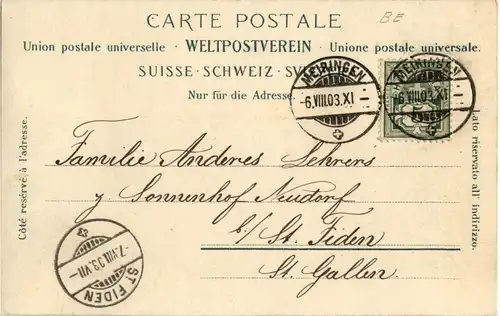 CARTE POSTALE
BE
Union postale universelle · WELTPOSTVEREIN · Unione postale universale.
SUISSE · SCHWEIZ ·
Nur für die Adresse.
MEIRINGEN
-6.VIII.03.XI-
MEIRINGEN
-6.VIII.03.XI-
Côté réservé à l'adresse.
Lato riservato all' indirizzo.
Familie Anderes Lehrers
z Sonnenhof Neudorf
b/ St. Fiden
St. Gallen.
-7.VIII.03.VII-
ST. FIDEN